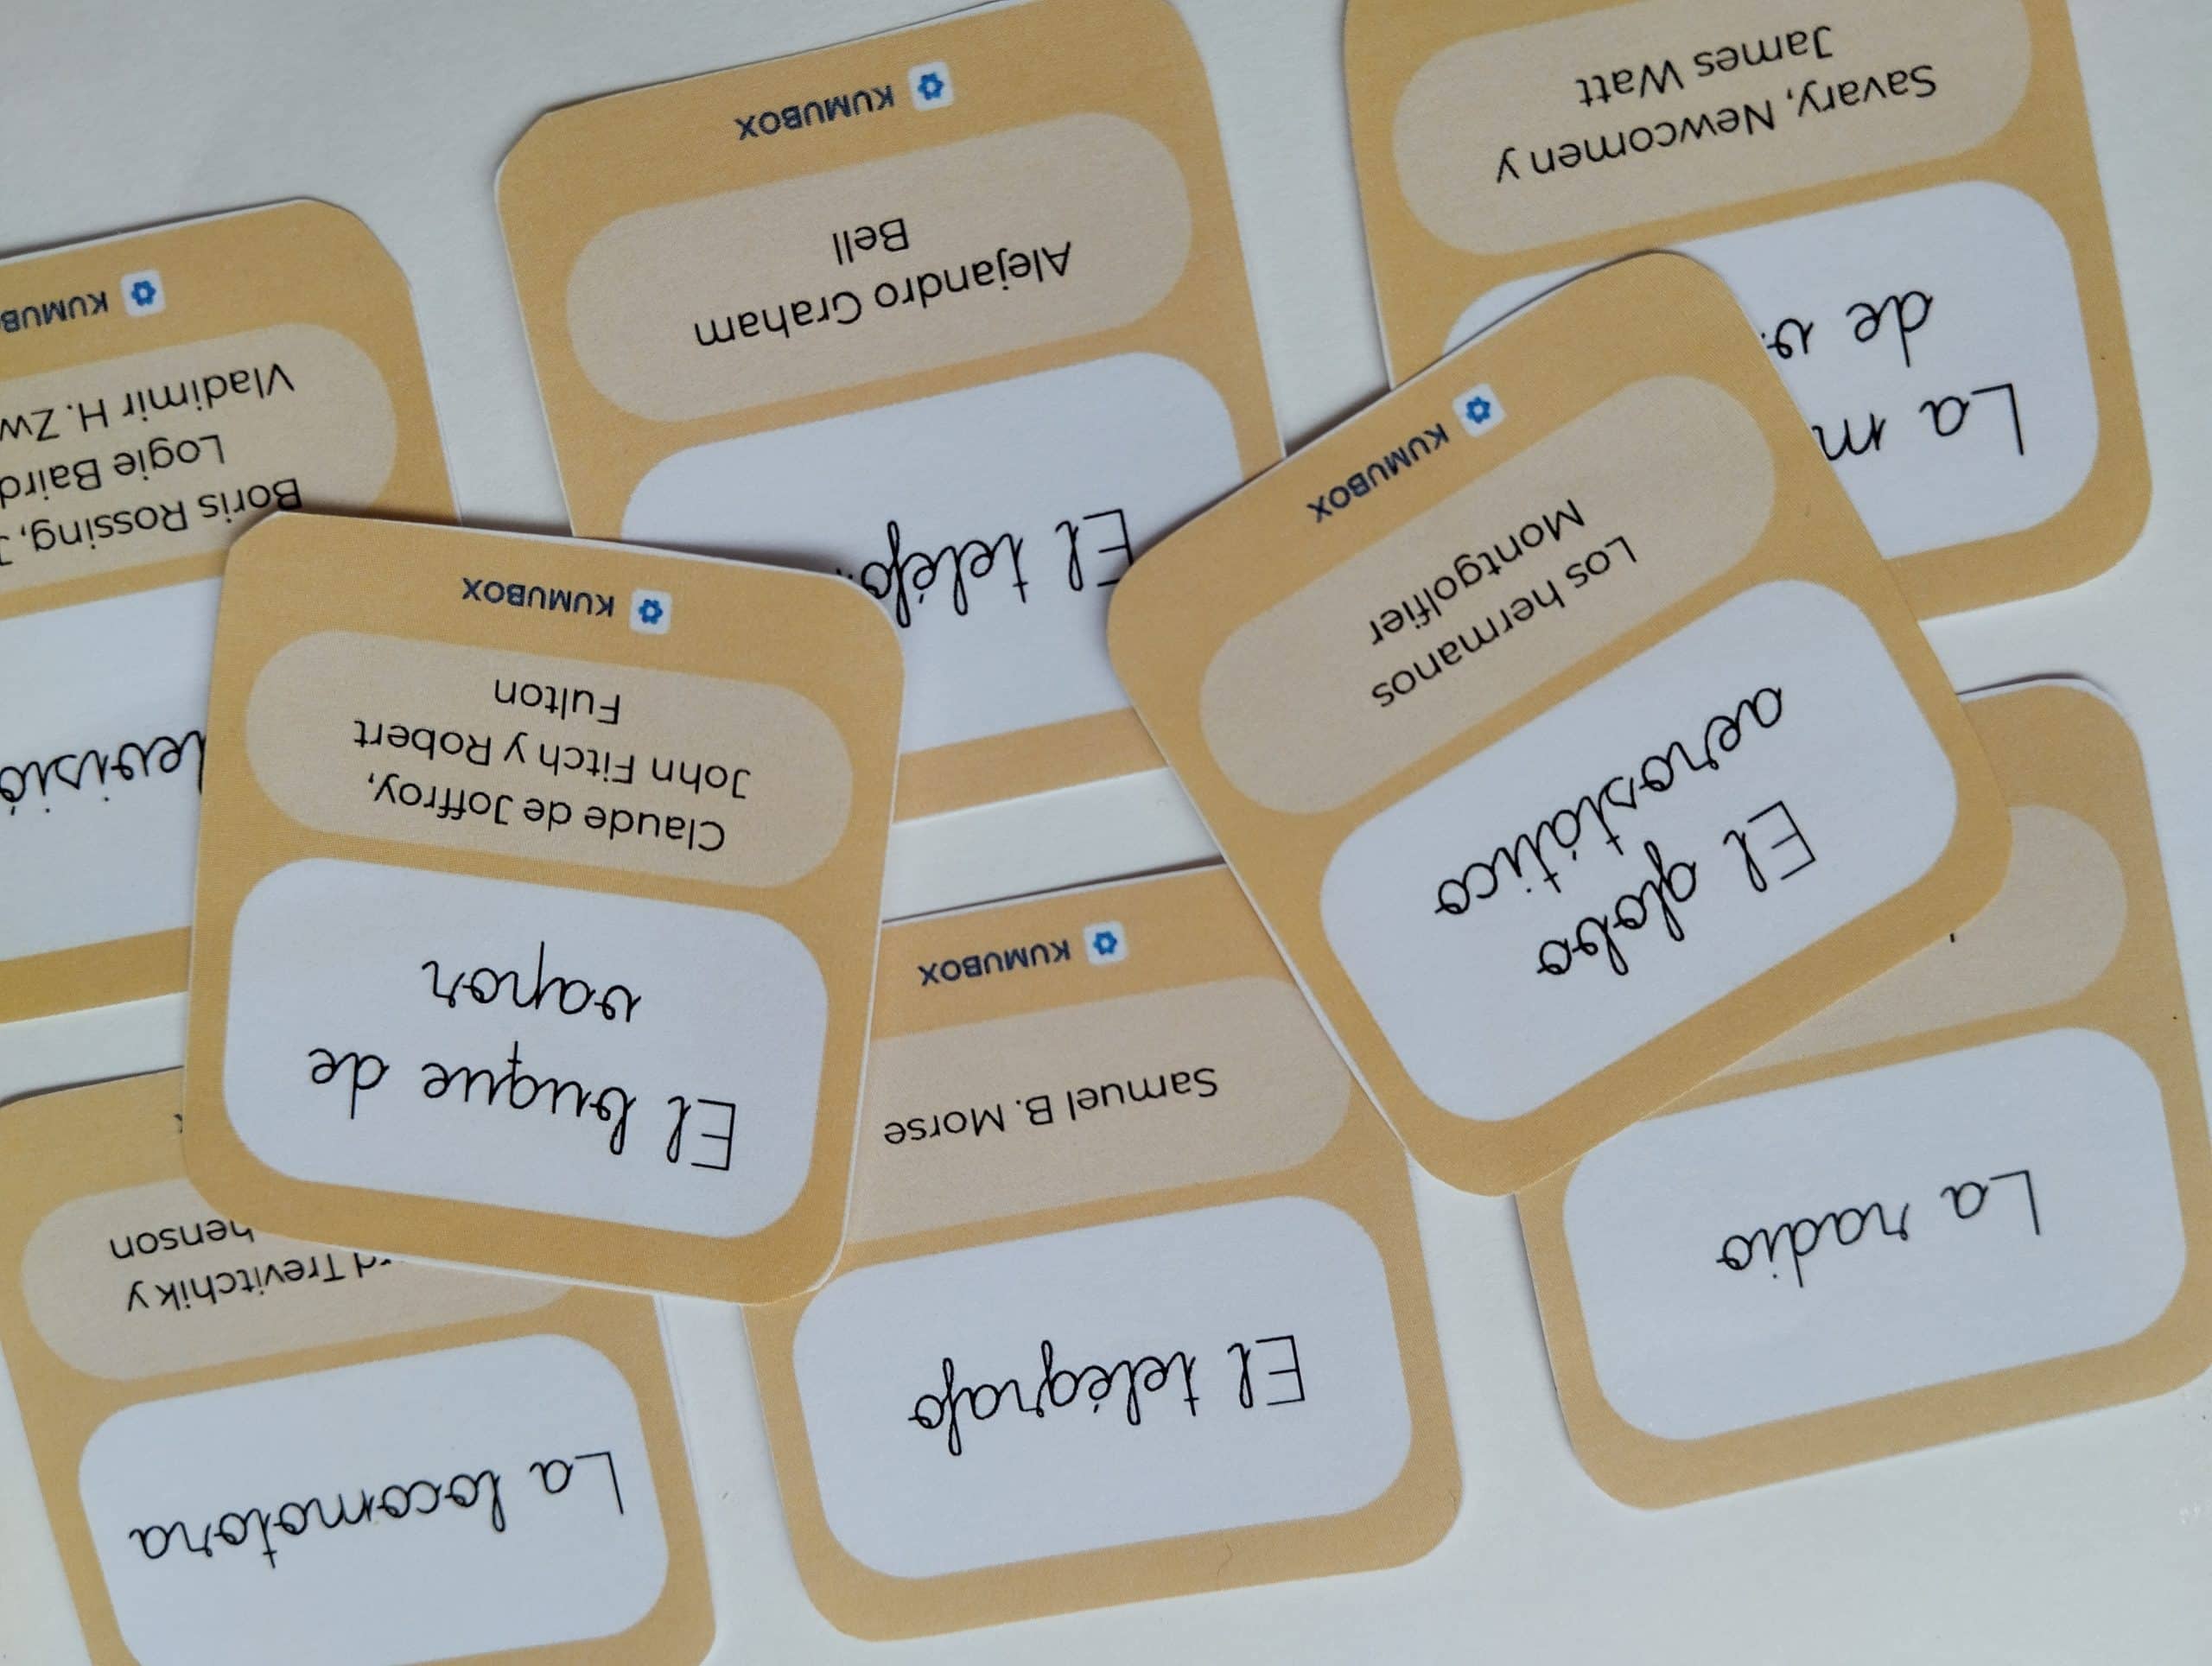 La locomotora
rd Trevitchik y
henson
El telégrafo
Samuel B. Morse
KUMUBOX
La radio
El buque de
vapor
Claude de Joffroy,
John Fitch y Robert
Fulton
KUMUBOX
El globo
aerostático
Los hermanos
Montgolfier
KUMUBOX
levisió
Boris Rossing, J
Logie Baird
Vladimir H. Zw
KUMUB
El teléfo
Alejandro Graham
Bell
KUMUBOX
La m
de v
Savary, Newcomen y
James Watt